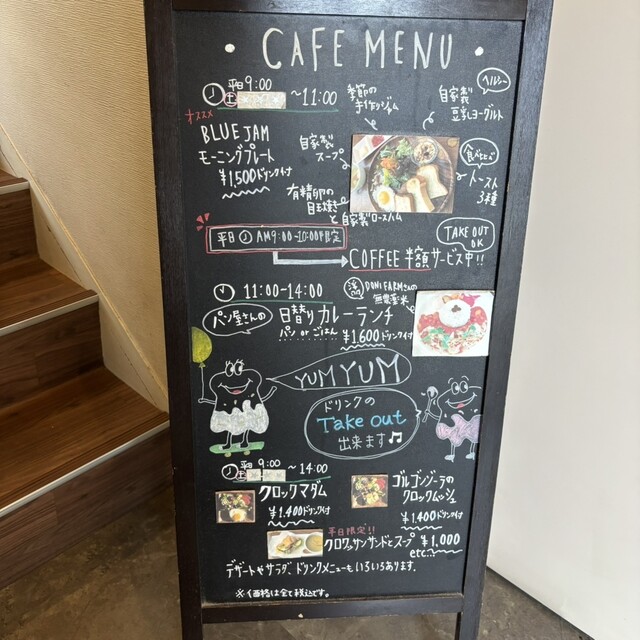 CAFE MENU
平日 9:00
土
~11:00
オススメ
BLUE JAM
モーニングプレート
¥1,500ドリンク付
季節の
手作りジャム
自家製
豆乳ヨーグルト
ヘルシー
自家製
スープ
食べくらべ
トースト
3種
有精卵の
目玉焼き
と自家製ロースハム
TAKE OUT
OK
平日 AM9:00-10:00限定
COFFEE 半額サービス中!!
11:00-14:00
DONI FARMさんの
無農薬米
パン屋さんの
日替りカレーランチ
パン or ごはん
¥1,600ドリンク付
YUM YUM
ドリンクの
Take out
出来ます♫
平日 9:00
土
~14:00
クロックマダム
¥1,400ドリンク付
ゴルゴンゾーラの
クロックムッシュ
¥1,400ドリンク付
平日限定!!
クロワッサンサンドとスープ ¥1,000
etc...
デザートやサラダ、ドリンクメニューもいろいろあります。
※価格は全て税込です。